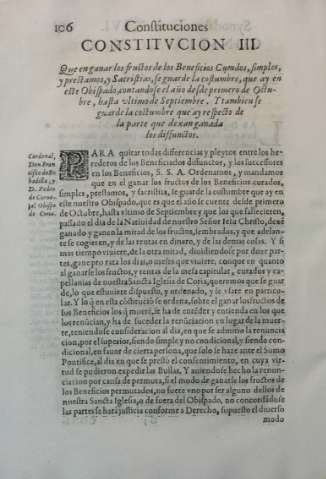 106 Constituciones
CONSTITVCION III.
Que en ganar los fructos de los Beneficios Curados, simples,
y prestamos, y Sacristias, se guarde la costumbre, que ay en
este Obispado, contandose el año desde primero de Octu-
bre, hasta vltimo de Septiembre. Y tambien se
guarde la costumbre que ay respecto de
la parte que dexan ganada
los diffunctos.
Cardenal,
Don Fran
cisco de Bo
badilla, y
D. Pedro
de
Obispo
de Coria.
PARA quitar todas differencias y pleytos entre los he-
rederos de los Beneficiados difunctos, y los successores
en los Beneficios, S. S. A. Ordenamos, y mandamos
que en el ganar los fructos de los Beneficios curados,
simples, prestamos, y sacristia, se guarde la costumbre que ay en
este nuestro Obispado, que es que el año se cuente desde primero
de Octubre, hasta vltimo de Septiembre y que los que fallecieren,
passado el dia de la Natiuidad de nuestro Señor Iesu Christo, dexē
ganado y ganen la mitad de los fructos, sembrados, y que adelan-
te se cogieren, y de las rentas en dinaro, y de las demas cosas. Y si
mas tiempo viuiere, de la otra mitad, diuidiendose por doze par-
tes, gane pro rata los dias, o meses que viuiere, conque en quanto
al ganar los fructos, y rentas de la mesa capitular, curados y ca-
pellanias de nuestra Sancta Iglesia de Coria, queremos que se guar
de, lo que estuuiere dispuesto, y ordenado, y se vsare en particu-
lar. Y lo q̄ en esta cōstitució se ordena, sobre el ganar los fructos de
los Beneficios los q̄ muerē, se ha de entēder y entienda en los que
los renūcian, y ha de suceder la renunciacion en lugar de la muer-
te, teniendose consideracion al dia, en que se admitio la renuncia
cion, por el superior, siendo simple y no condicional, y siendo con-
dicional, en fauor de cierta persona, que solo se haze ante el Sumo
Pontifice, al dia en que se presto el consentimiento, en cuya vir-
tud se pudieron expedir las Bullas. Y auiendose hecho la renun-
ciacion por causa de permuta, si el modo de ganar se los fructos de
los Beneficios permutados, no fuere vno por ser alguno dellos de
nuestra Sancta Iglesia, o de fuera del Obispado, no concertādose
las partes se hara justicia conforme a Derecho, supuesto el diuerso
modo